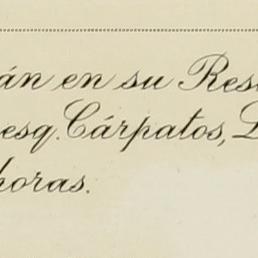 án en su Res
esq. Cárpatos, L
horas.